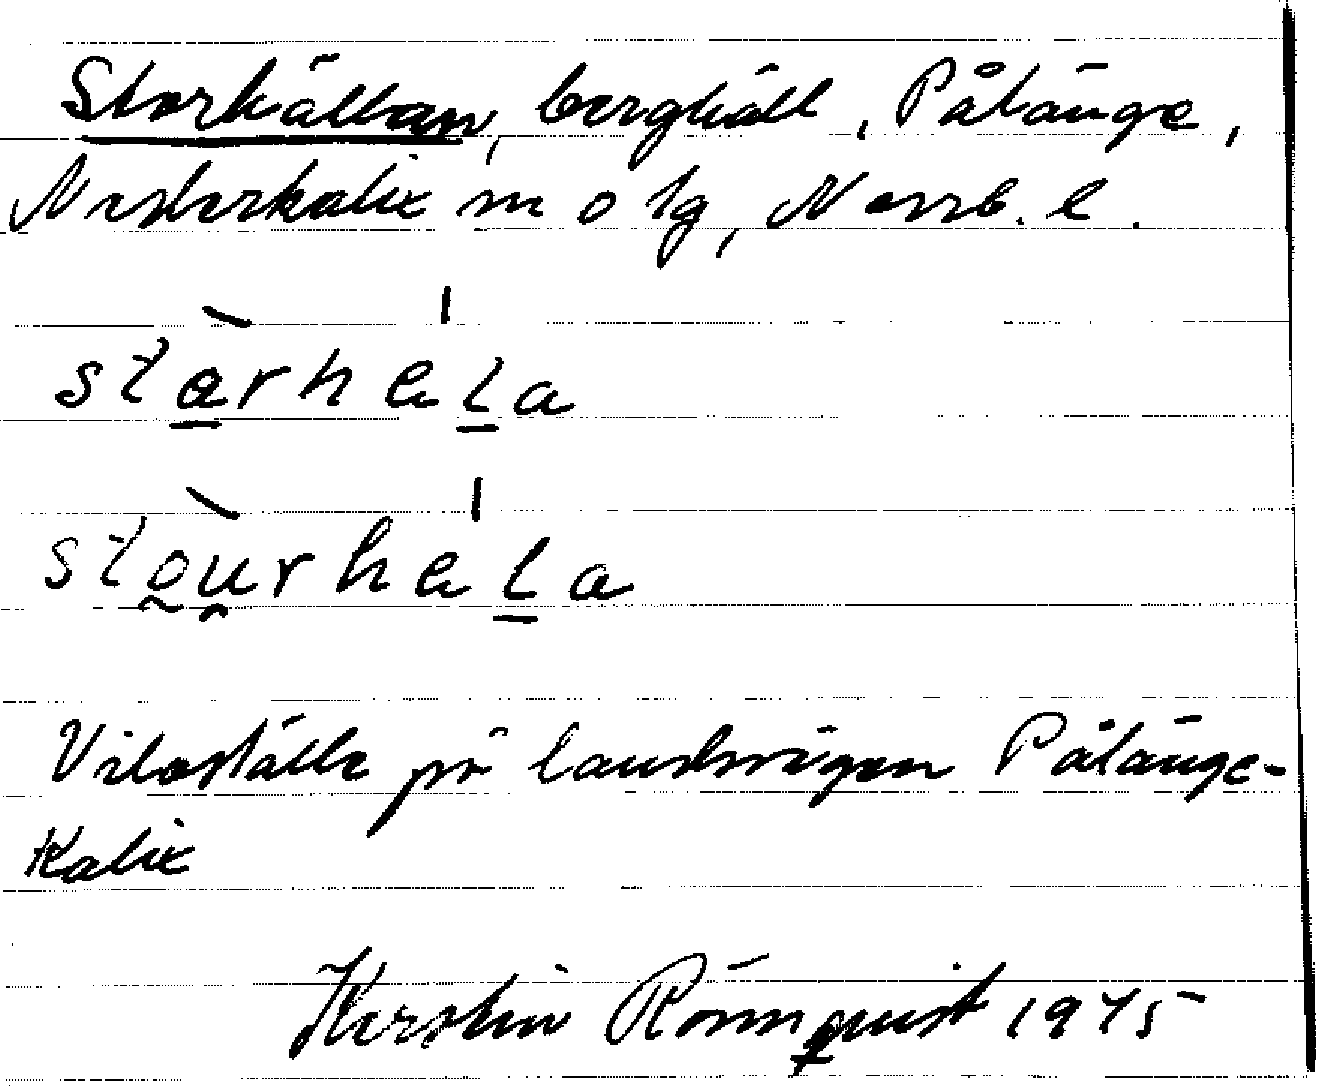 Storhällan, berghäll, Pålänge,
Nederkalix m o tg, Norrb. l.
starhela
stourhela
Viloställe på landsvägen Pålänge-
Kalix
Kerstin Rönnquist 1975